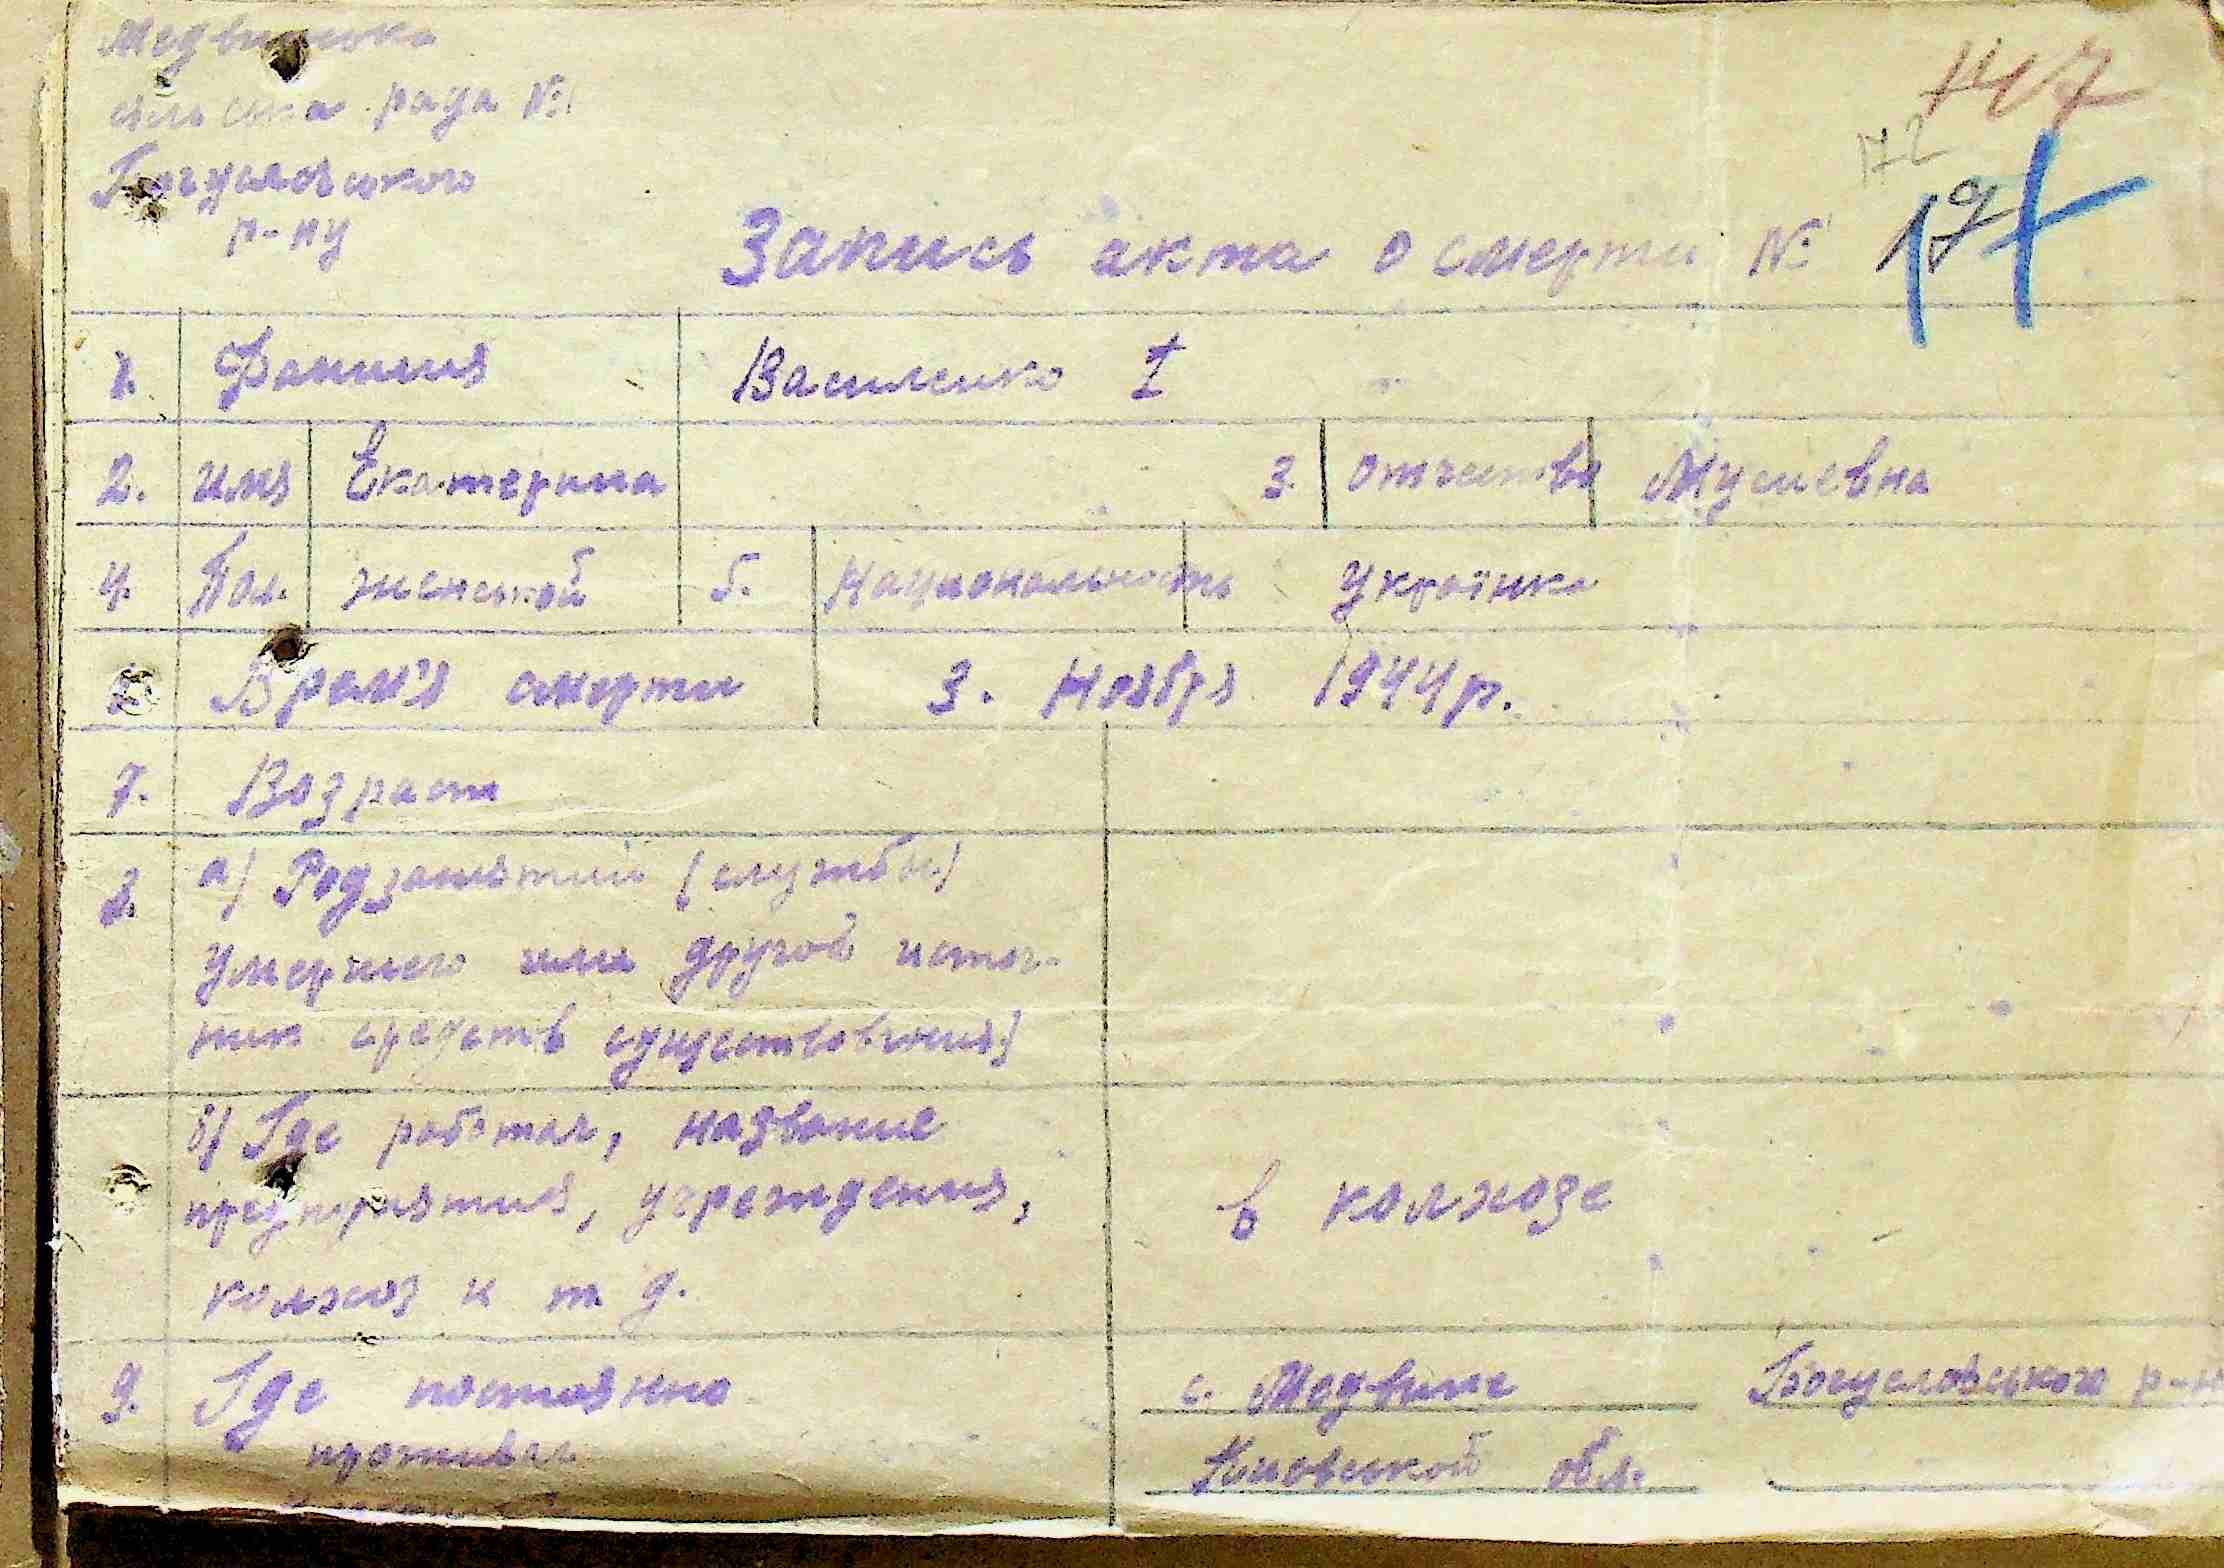 Медвинська
сільська рада №1
Богуславського
р-ну
107
172
Запись акта о смерти №
1. Фамилия Василенко I
2. имя Екатерина 3. отчество Мусиевна
4. Пол. женськой 5. Национальность Українка
Врем'я смерти 3. Ноября 1944 р.
7. Возраст
8. а) Род занятий (службы)
умершего или другой источ-
ник средств существования)
б) Где работал, название
предприятия, учреждения, в колхозе
колхоз и т д.
9. Где постоянно с. Медвин Богуславського р-н
проживал Киевской обл.